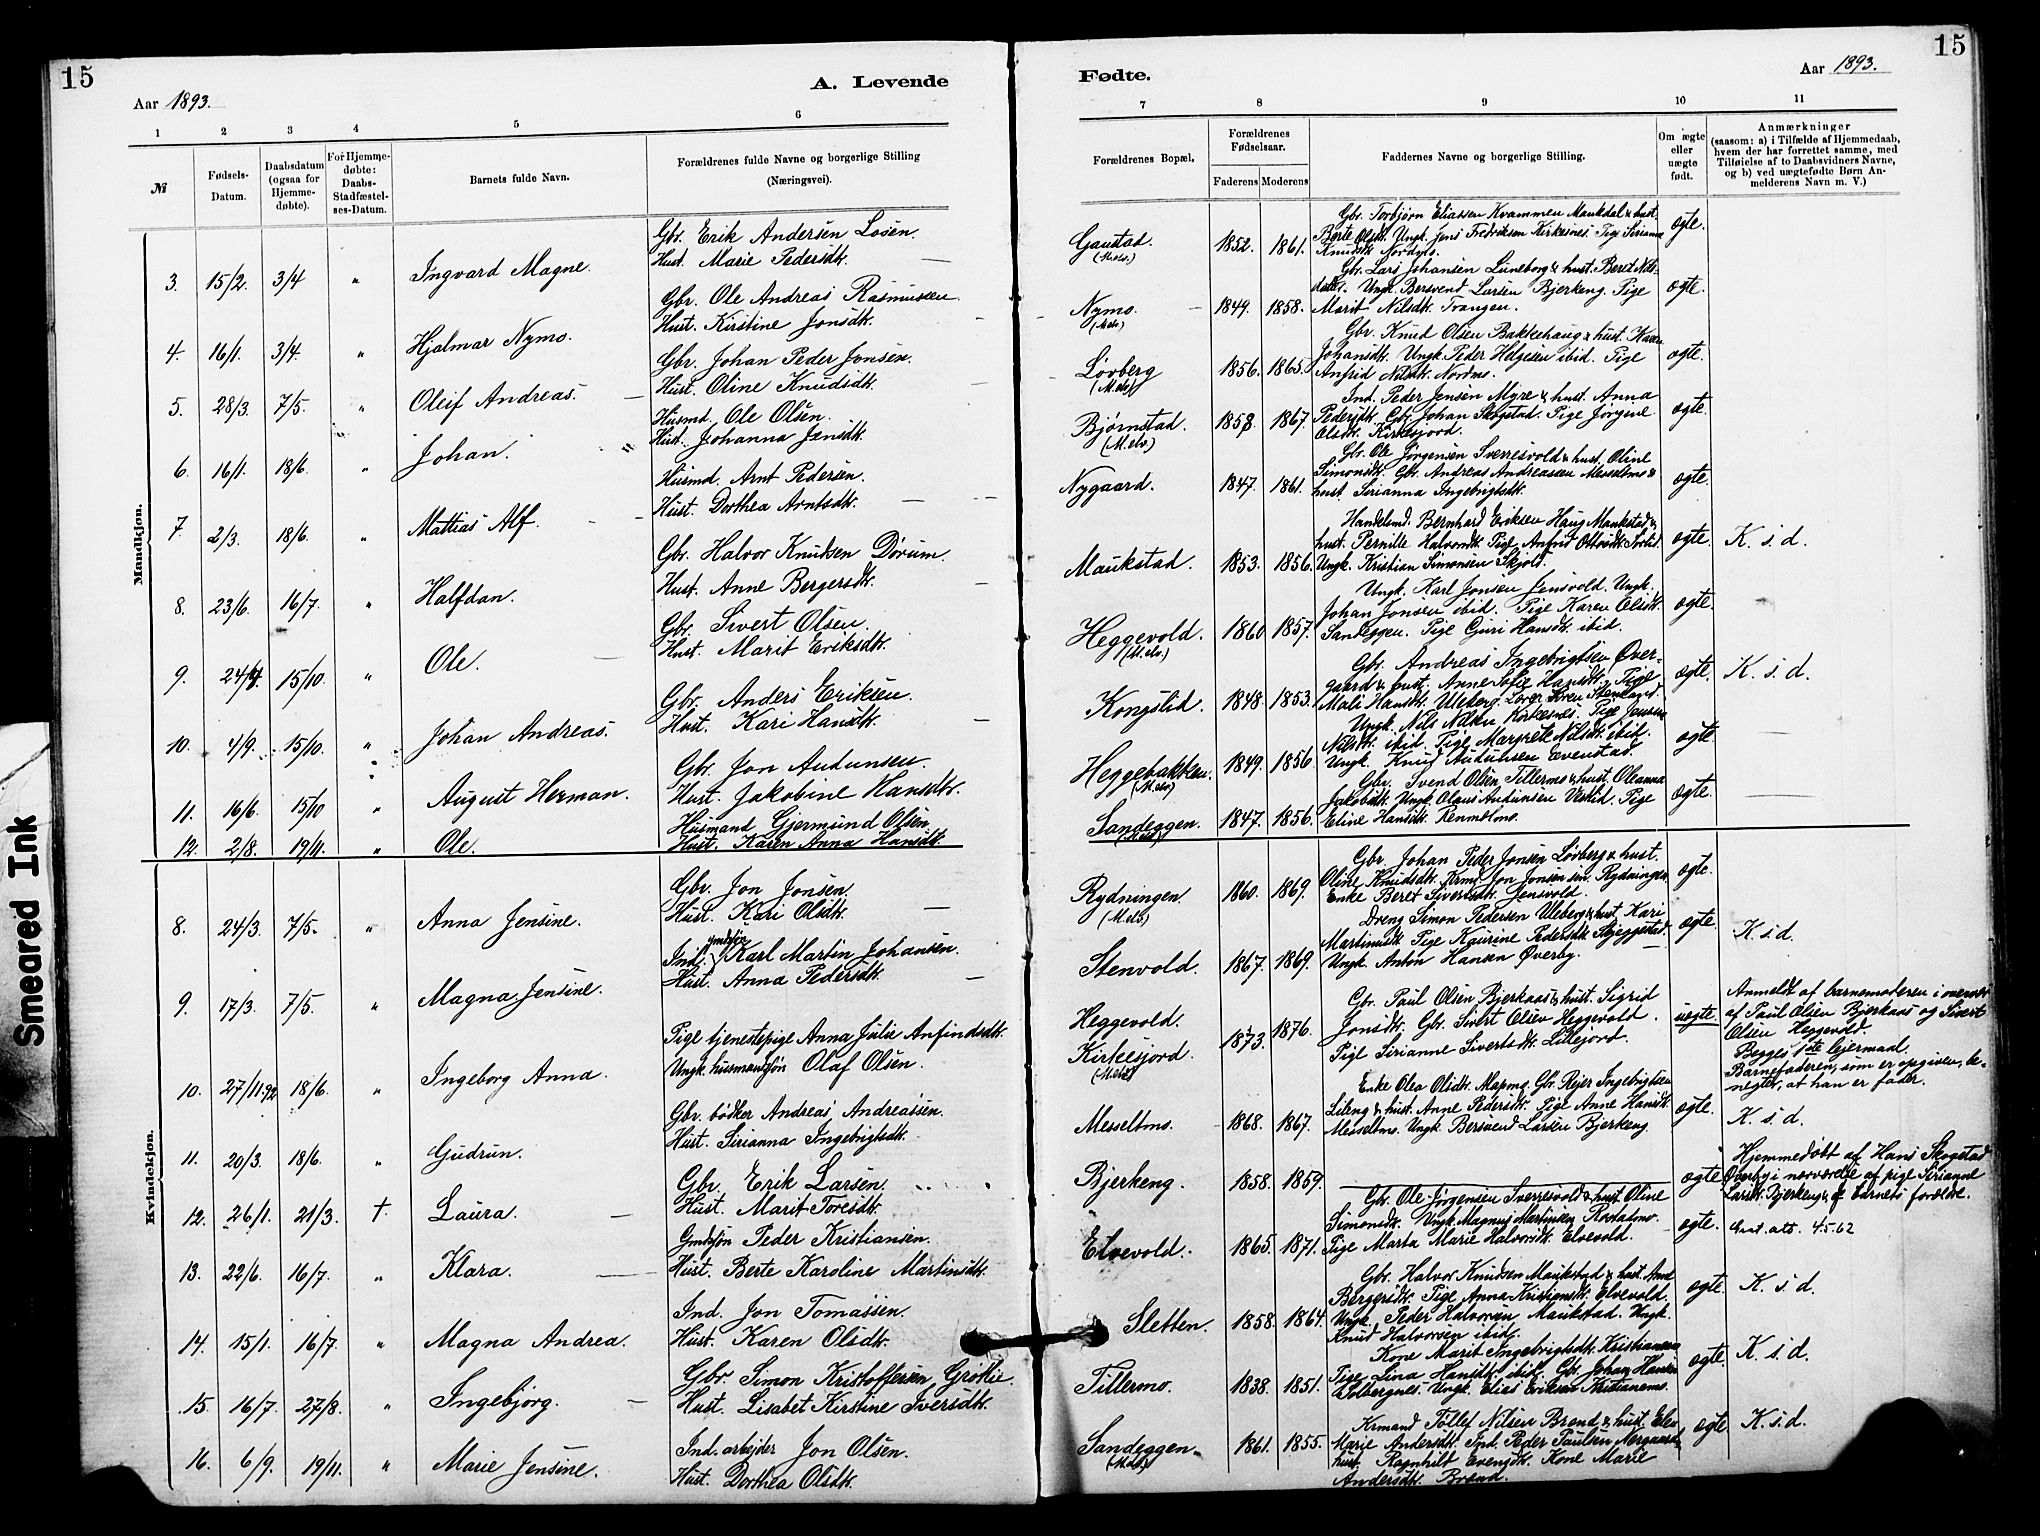 15
Aar 1893.
A. Levende
1 2 3 4 5 6
№
Fødsels-
Datum.
Daabsdatum
(ogsaa for
Hjemme-
døbte).
For Hjemme-
døbte:
Daabs-
Stadfæstel-
ses-Datum.
Barnets fulde Navn.
Forældrenes fulde Navne og borgerlige Stilling
(Næringsvei).
Mandkjøn.
3. 15/2. 3/4 " Ingvard Magne.
Gbr. Erik Andersen Løsen.
Hust. Marie Pedersdtr.
4. 16/1. 3/4. " Hjalmar Nymo.
Gbr. Ole Andreas Rasmussen.
Hust. Kirstine Jonsdtr.
5. 28/3. 7/5. " Oleif Andreas.
Gbr. Johan Peder Jonsen.
Hust. Oline Knudsdtr.
6. 16/1. 18/6. " Johan.
Husmd. Ole Olsen.
Hust. Johanna Jensdtr.
7. 2/3. 18/6. " Mattias Alf.
Husmd. Arnt Pedersen.
Hust. Dorthea Arntsdtr.
8. 23/6. 16/7. " Halfdan.
Gbr. Halvor Knudsen Dørum.
Hust. Anne Bergersdtr.
9. 24/4. 15/10. " Ole.
Gbr. Sivert Olsen.
Hust. Marit Eriksdtr.
10. 4/9. 15/10. " Johan Andreas.
Gbr. Anders Eriksen.
Hust. Kari Hansdtr.
11. 16/6. 15/10 " August Herman.
Gbr. Jon Audunsen.
Hust. Jakobine Hansdtr.
12. 2/8. 19/11. " Ole.
Husmand Gjermund Olsen
Hust. Karen Anna Hansdtr.
Kvindekjøn.
8. 24/3. 7/5. " Anna Jensine.
Gbr. Jon Jonsen.
Hust. Kari Olsdtr.
9. 17/3. 7/5. " Magna Jensine.
Ind. Karl Martin Johansen.
Hust. Anna Pedersdtr.
10. 27/11.92 18/6. " Ingeborg Anna.
Pige tjenestepige Anna Julie Anfindsdtr.
Ungk. husmandssøn Olaf Olsen.
11. 20/3. 18/6. " Gudrun.
Gbr. bødker Andreas Andreassen.
Hust. Sirianna Ingebrigtsdtr.
12. 26/1. 21/3. † Laura.
Gbr. Erik Larsen.
Hust. Marit Toresdtr.
13. 22/6. 16/7. " Klara.
Gmdssøn Peder Kristiansen.
Hust. Berte Karoline Martinsdtr.
14. 15/1. 16/7. " Magna Andrea.
Ind. Jon Tomassen.
Hust. Karen Olsdtr.
15. 16/7. 27/8. " Ingebjørg.
Gbr. Simon Kristoffersen Grøtlie.
Hust. Lisabet Kirstine Iversdtr.
16. 6/9. 19/11. " Marie Jensine.
Ind. arbejder Jon Olsen.
Hust. Dorthea Olsdtr.
Smeared Ink
15
Fødte.
Aar 1893.
7 8 9 10 11
Forældrenes Bopæl.
Forældrenes
Fødselsaar.
Faderens Moderens
Faddernes Navne og borgerlige Stilling.
Om ægte
eller
uægte
født.
Anmærkninger
(saasom: a) i Tilfælde af Hjemmedaab,
hvem der har forrettet samme, med
Tilføielse af to Daabsvidners Navne,
og b) ved uægtefødte Børn An-
melderens Navn m. V.)
Gaustad. (M.elv.) 1852. 1861.
Gbr. Torbjørn Eliassen Kvammen Maukdal & hust.
Berte Olsdtr. Ungk. Jens Fredriksen Kirkesnes. Pige Sirianna
Knudsdtr.
ægte.
Nymo. (M.elv) 1849. 1858.
Gbr. Lars Johansen Lüneborg & hust. Beret Nils-
datter. Ungk. Bersvend Larsen Bjerkeng. Pige
Marit Nilsdtr. Trangen.
ægte.
Løvberg (M.elv) 1856. 1865.
Gbr. Knud Olsen Bakkehaug & hust. Karen
Johansdtr. Ungk. Peder Helgesen ibid. Pige
Anfrid Nilsdtr. Nordmo.
ægte.
Bjørnstad. (M.elv) 1858. 1867.
Ind. Peder Jensen Myre & hust. Anna
Pedersdtr. Gbr. Johan Skogstad. Pige Jørgine
Olsdtr. Kirkesjord.
ægte.
Nygaard. 1847. 1861.
Gbr. Ole Jørgensen Sverresvold & hust. Oline
Simonsdtr. Gbr. Andreas Andreassen Messeltmo &
hust. Sirianna Ingebrigtsdtr.
ægte.
Maukstad. 1853. 1856.
Handelsmd. Bernhard Eriksen Haug Maukstad &
hust. Pernille Halvorsdtr. Pige Anfrid
Ungk. Kristian Simonsen Skjold.
ægte. K. s. d.
Heggevold. (M.elv.) 1860 1857.
Ungk. Karl Jonsen Jensvold. Ungk.
Johan Jonsen ibid. Pige Karen Olsdtr.
Sandeggen. Pige Guri Hansdtr. ibid.
ægte.
Kongslid. 1848. 1853.
Gbr. Andreas Ingebrigtsen Øver-
gaard & hust. Anne Sofie Hansdtr. Pige
Mali Hansdtr. Uleberg.
ægte. K. s. d.
Heggebakken. (M.elv) 1849. 1856.
Ungk. Nils Nilsen Kirkesnes. Pige
Nilsdtr. ibid. Pige Margrete Nilsdtr. ibid.
Ungk. Knud Audunsen Evenstad.
ægte.
Sandeggen. (M.elv) 1847. 1856.
Gbr. Svend Olsen Tillermo & hust. Oleanna
Jakobsdtr. Ungk. Olaus Audunsen Vestlid. Pige
Eline Hansdtr. Renmælmo.
ægte.
Rydningen. (M.elv) 1860. 1869.
Gbr. Johan Peder Jonsen Løvberg & hust.
Oline Knudsdtr. Krmd. Jon Jonsen sen. Rydningen
Enke Beret Sivertsdtr. Jensvold.
ægte.
Stenvold. 1867. 1869.
Dreng Simon Pedersen Uleberg & hust. Kari
Martinusdtr. Pige Kaurine Pedersdtr. Skjeggestad
Ungk. Anton Hansen Øverby.
ægte. K.s.d.
Heggevold.
Kirkesjord. (M.elv) 1873. 1876.
Gbr. Paul Olsen Bjerkaas & hust. Sigrid
Jonsdtr. Gbr. Sivert Olsen Heggevold.
Pige Sirianne Sivertsdtr. Lillejord.
uegte.
Anmeldt af barnemoderen i overvær
af Paul Olsen Bjerkaas og Sivert
Olsen Heggevold.
Begges 1ste lejermaal.
Barnefaderen, som er opgiven, be-
negter, at han er fader.
Messeltmo. 1868. 1867.
Enke Olea Olsdtr. Mapmo. Gbr. Rejer Ingebrigtsen
Lileng & hust. Anne Pedersdtr. Pige Anne Hansdtr.
Messeltmo. Ungk. Bersvend Larsen Bjerkeng.
ægte. K. s. d.
Bjerkeng. 1858. 1859.
ægte
Hjemmedøbt af Hans Skogstad
Øverby i nærværelse af pige Sirianne
Larsdtr. Bjerkeng & barnets forældre.
Elvevold. 1865. 1871.
Gbr. Ole Jørgensen Sverresvold & hust. Oline
Simonsdtr. Ungk. Magnus Martinsen Rostadmo.
Pige Marta Marie Halvorsdtr. Elvevold.
ægte. att. 4.5.62
Sletten. 1858. 1864.
Gbr. Halvor Knudsen Maukstad & hust. Anne
Bergersdtr. Pige Anna Kristiansdtr. Elvevold.
Ungk. Peder Halvorsen Maukstad. Ungk.
Knud Halvorsen ibid.
ægte. K. s. d.
Tillermo. 1838. 1851.
Kone Marit Ingebrigtsdtr. Kristiansmo
Pige Lina Hansdtr. ibid. Gbr. Johan Hansen
Solbergnes. Ungk. Elias Eriksen Kristiansmo.
ægte. K. s. d.
Sandeggen. (M.elv) 1861. 1855.
Krmand Tollef Nilsen Brend & hust. Elen
Marie Andersdtr. Ind. Peder Paulsen Nergaard &
hust. Ragnhild Evensdtr. Kone Marie
Andersdtr. Brend.
ægte K.s.d.